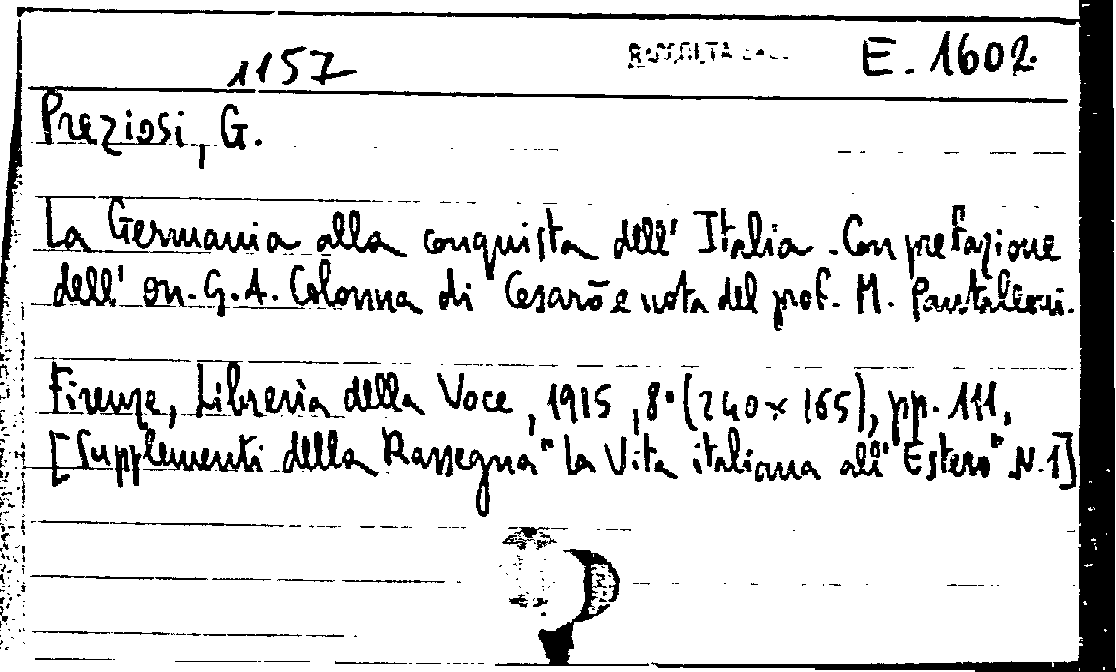 1157 RACCOLTA E. 1602
Preziosi, G.
La Germania alla conquista dell' Italia. Con prefazione
dell' on. G. A. Colonna di Cesarò e nota del prof. M. Pantaleoni.
Firenze, Libreria della Voce, 1915, 8° (240 x 165), pp. 111,
[Supplementi della Rassegna "La Vita italiana all' Estero" N. 1]